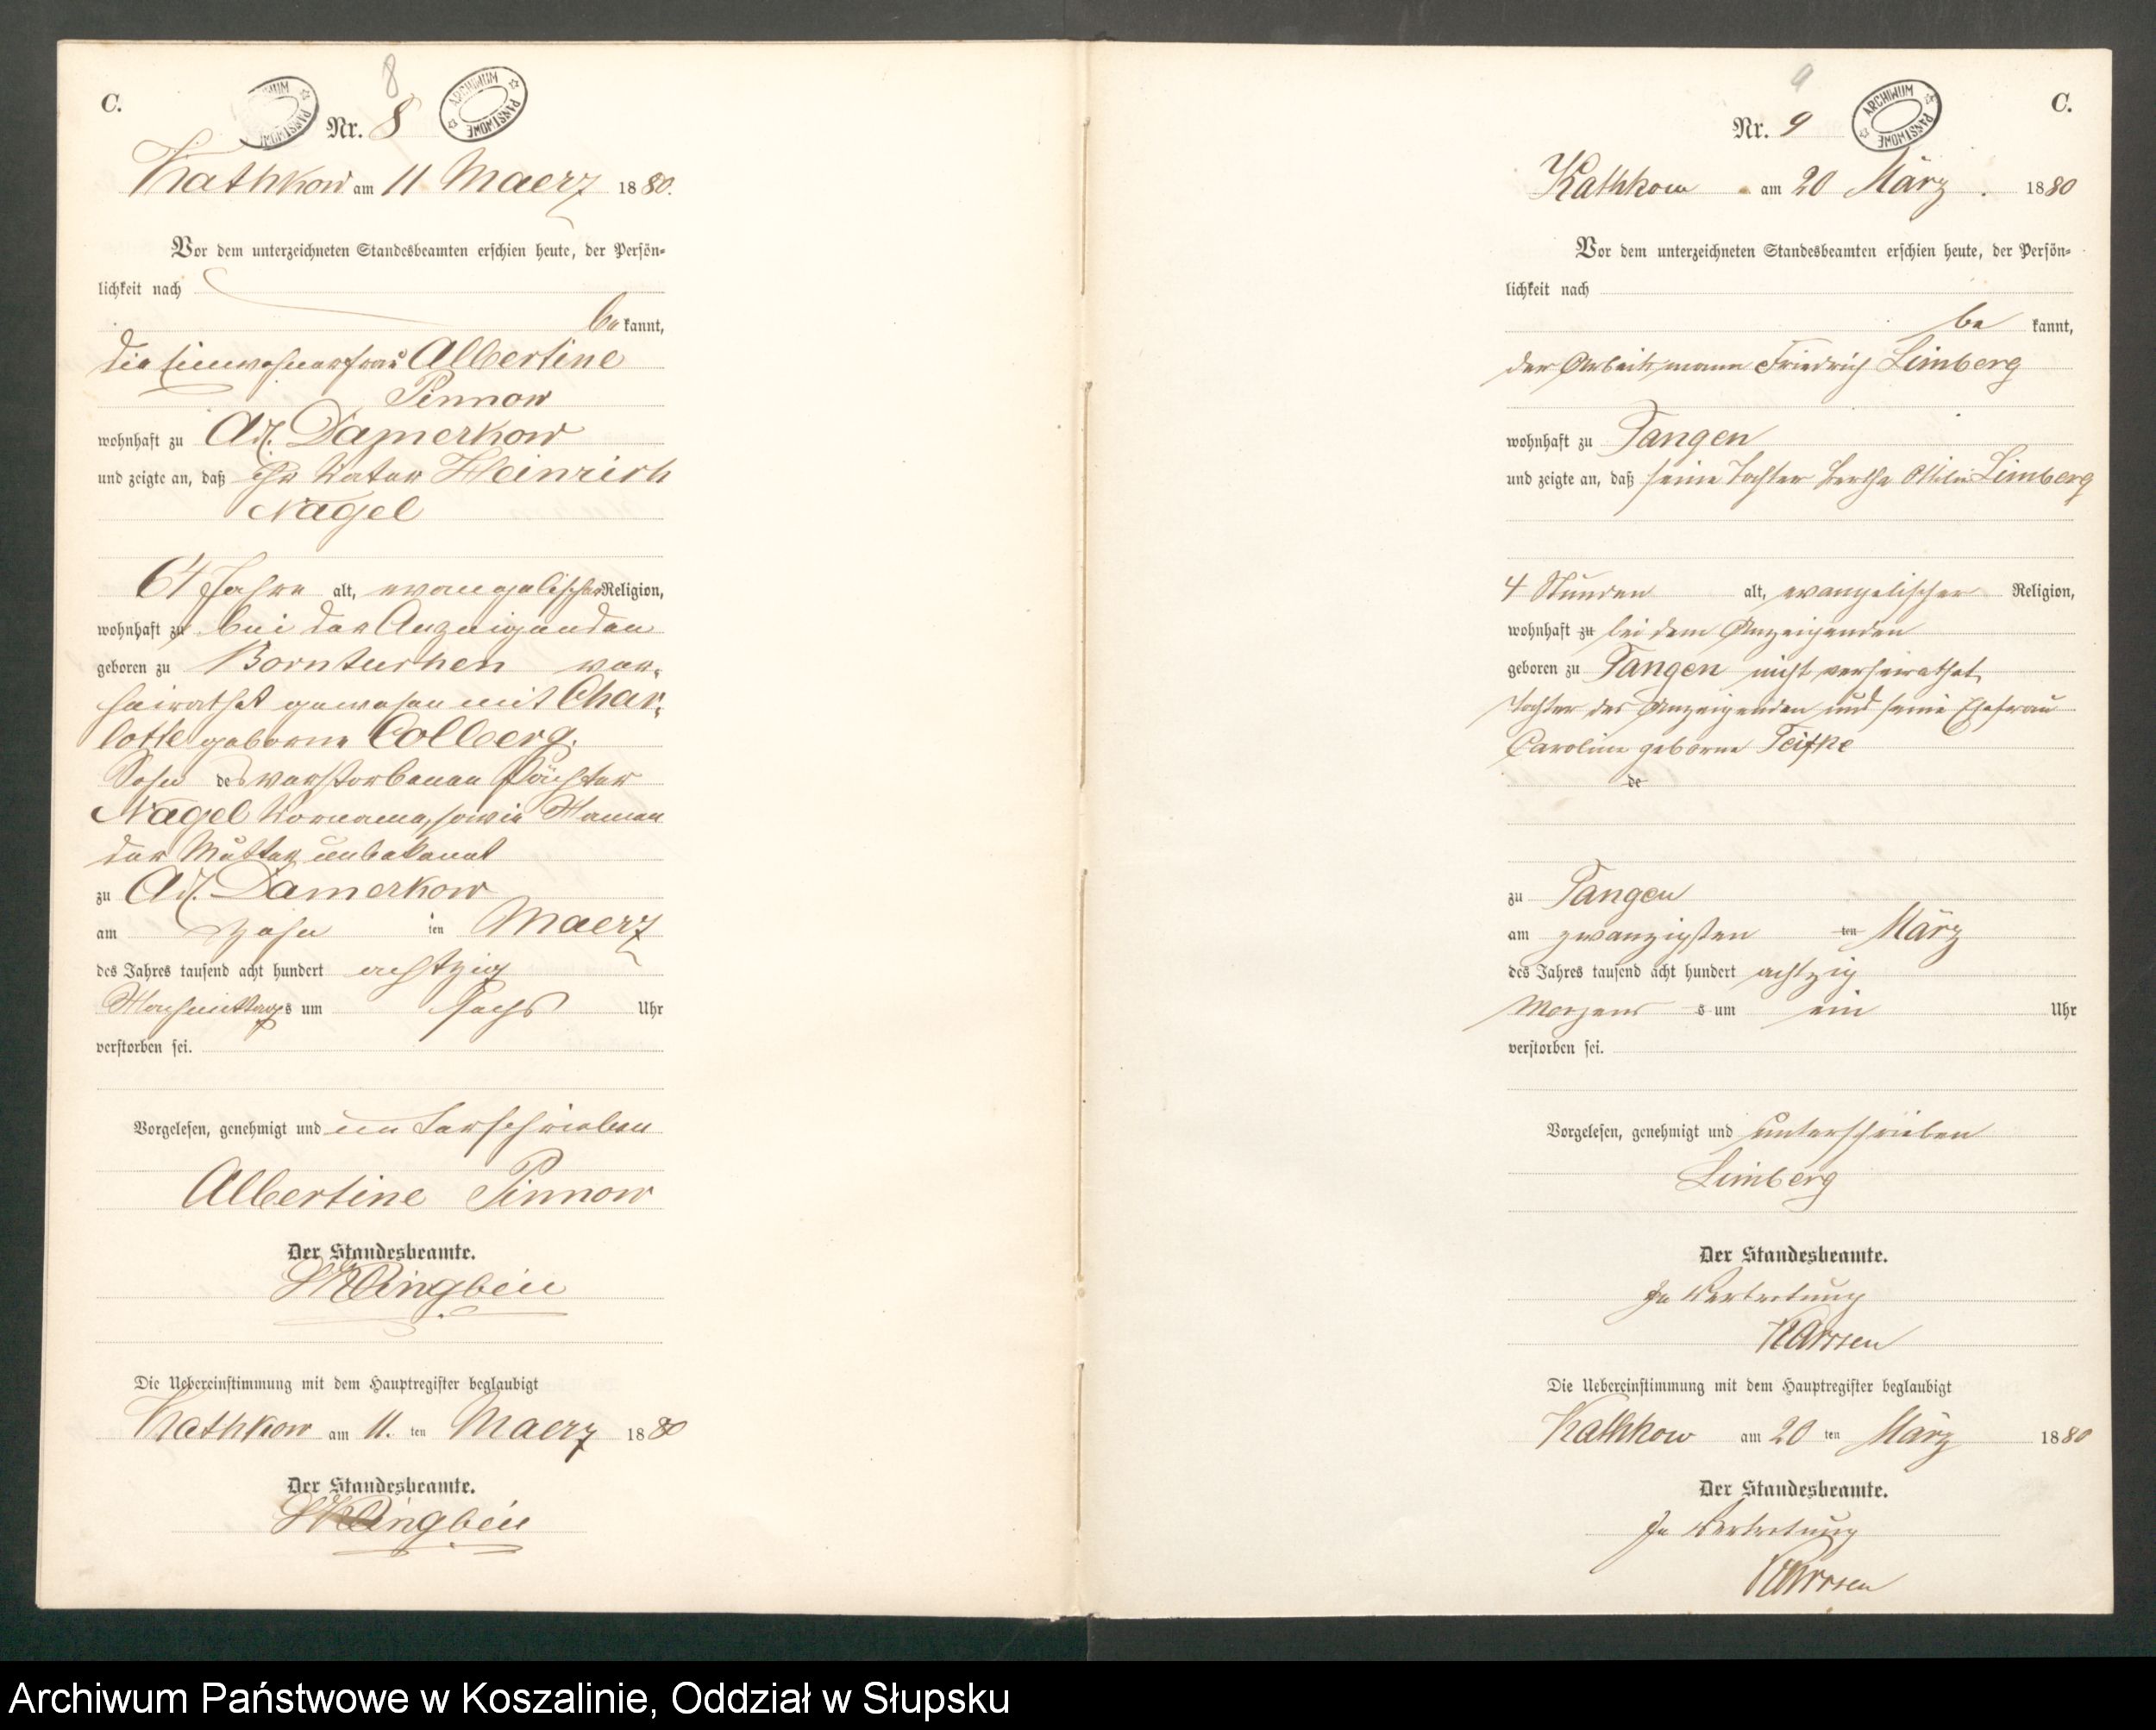 C.
8
ARCHIWUM PAŃSTWOWE
ARCHIWUM PAŃSTWOWE
Nr. 8
Kathkow am 11 Maerz 1880.
Vor dem unterzeichneten Standesbeamten erschien heute, der Persön-
lichkeit nach
bekannt,
die Einwohnerfrau Albertine
Pinnow
wohnhaft zu Adl. Damerkow
und zeigte an, daß ihr Vater Heinrich
Nagel
64 Jahre alt, evangelischer Religion,
wohnhaft zu bei der Anzeigenden
geboren zu Borntuchen ver-
heirathet gewesen mit Char-
lotte geborne Colberg.
Sohn des verstorbenen Pächter
Nagel Vorname, sowie Namen
der Mutter unbekannt
zu Adl. Damerkow
am zehn ten Maerz
des Jahres tausend acht hundert achtzig
Nachmittags um sechs Uhr
verstorben sei.
Vorgelesen, genehmigt und unterschrieben
Albertine Pinnow
Der Standesbeamte.
Klingbeil
Die Uebereinstimmung mit dem Hauptregister beglaubigt
Kathkow am 11. ten Maerz 1880
Der Standesbeamte.
Klingbeil
C.
9
ARCHIWUM PAŃSTWOWE
Nr. 9
Kathkow am 20 März. 1880
Vor dem unterzeichneten Standesbeamten erschien heute, der Persön-
lichkeit nach
be kannt,
der Arbeitsmann Friedrich Limberg
wohnhaft zu Tangen
und zeigte an, daß seine Tochter Bertha Ottilie Limberg
4 Stunden alt, evangelischer Religion,
wohnhaft zu bei dem Anzeigenden
geboren zu Tangen nicht verheirathet,
Tochter des Anzeigenden und seine Ehefrau
Caroline geborne
de
zu Tangen
am zwanzigsten ten März
des Jahres tausend acht hundert achtzig
Morgens s um ein Uhr
verstorben sei.
Vorgelesen, genehmigt und unterschrieben
Limberg
Der Standesbeamte.
In Vertretung
Die Uebereinstimmung mit dem Hauptregister beglaubigt
Kathkow am 20 ten März 1880
Der Standesbeamte.
In Vertretung
Archiwum Państwowe w Koszalinie, Oddział w Słupsku